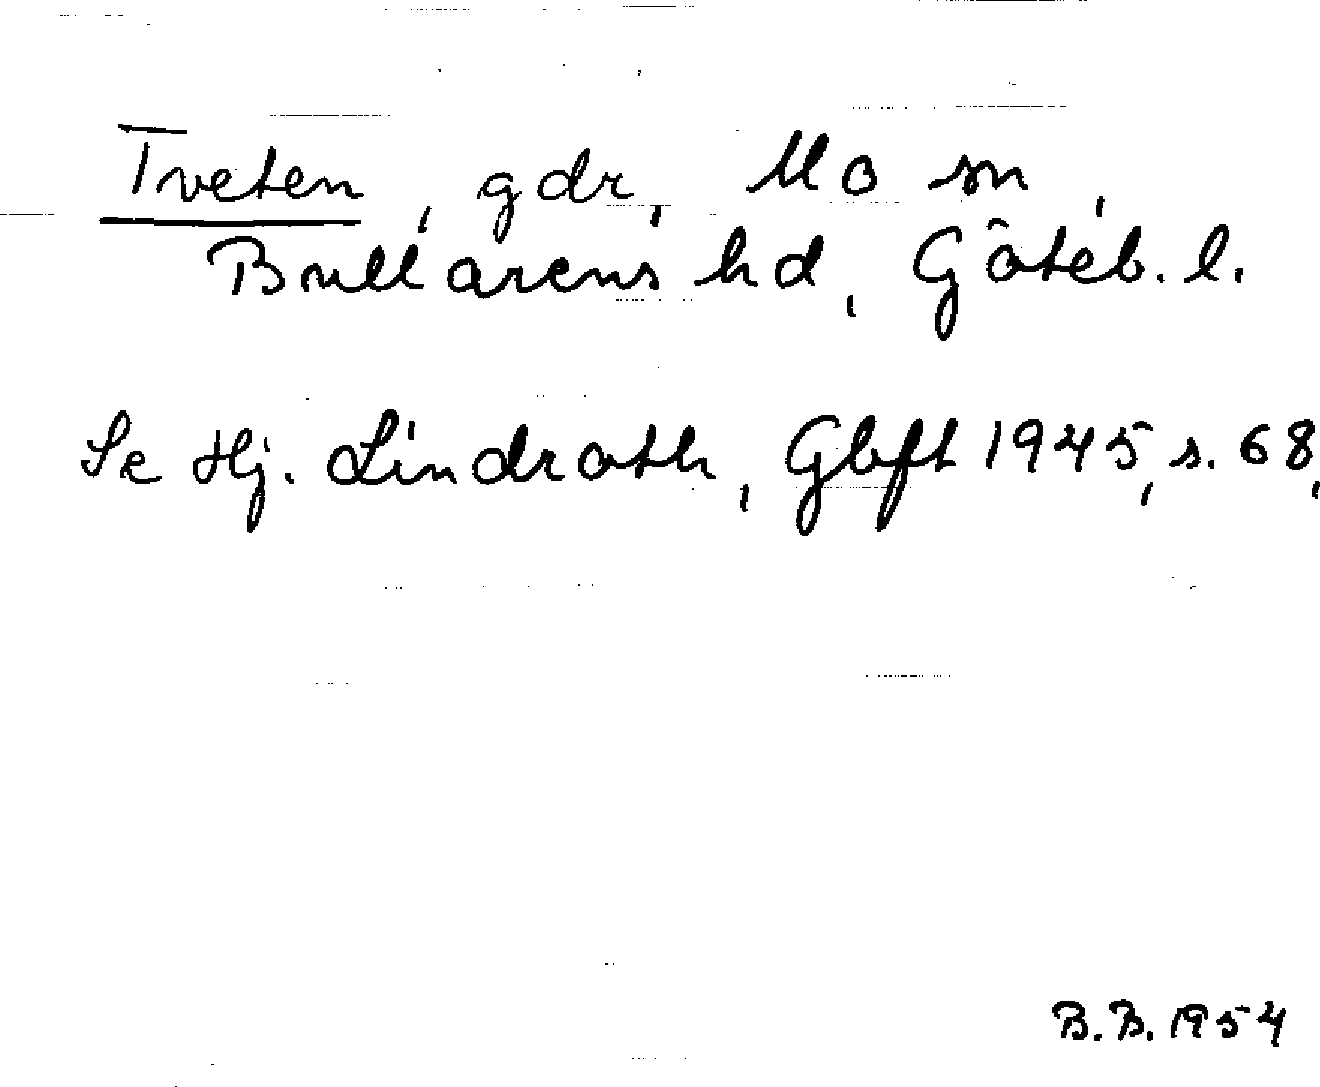 Tveten, gdr, Mo sn,
Bullarens hd, Göteb. l.
Se Hj. Lindroth, Gbft 1945, s. 68,
B.B. 1954